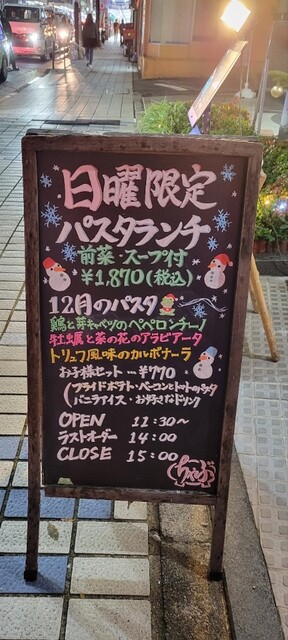 日曜限定
パスタランチ
前菜・スープ付
¥1,870(税込)
12月のパスタ
鶏と芽キャベツのペペロンチーノ
牡蠣と菜の花のアラビアータ
トリュフ風味のカルボナーラ
お子様セット…¥770
(フライドポテト・ベーコンとトマトのパスタ
バニラアイス・お好きなドリンク
OPEN 11:30〜
ラストオーダー 14:00
CLOSE 15:00